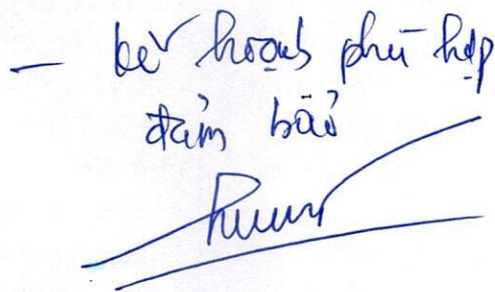 - kế hoạch phù hợp
đảm bảo